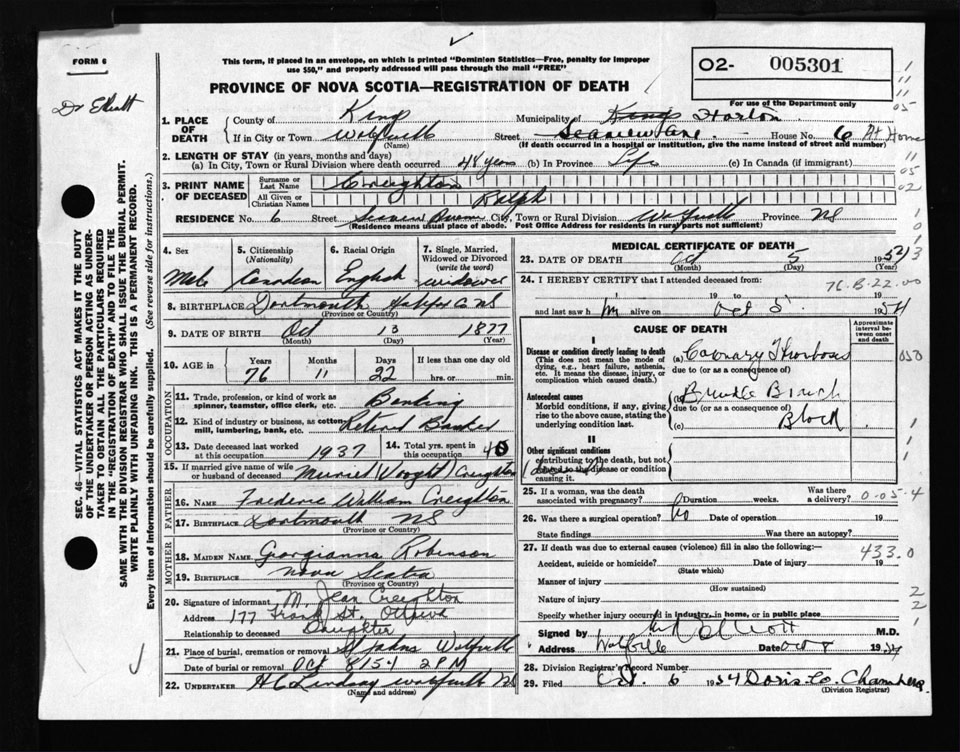 FORM 6
This form, if placed in an envelope, on which is printed "Dominion Statistics—Free, penalty for improper
use $50," and properly addressed will pass through the mail "FREE"
PROVINCE OF NOVA SCOTIA—REGISTRATION OF DEATH
O2- 005301
For use of the Department only
Dr Elliott
1. PLACE OF DEATH
County of Kings Municipality of Kings Horton
If in City or Town Wolfville Street Seaview Ave House No. 6 At Home
(Name) (If death occurred in a hospital or institution, give the name instead of street and number)
2. LENGTH OF STAY (in years, months and days)
(a) In City, Town or Rural Division where death occurred 48 years (b) In Province Life (c) In Canada (if immigrant)
3. PRINT NAME OF DECEASED
Surname or Last Name Creighton
All Given or Christian Names Ralph
RESIDENCE No. 6 Street Seaview City, Town or Rural Division Wolfville Province NS
(Residence means usual place of abode. Post Office Address for residents in rural parts not sufficient)
4. Sex Male
5. Citizenship (Nationality) Canadian
6. Racial Origin English
7. Single, Married, Widowed or Divorced (write the word) widower
8. BIRTHPLACE Dartmouth Halifax Co NS
(Province or Country)
9. DATE OF BIRTH Oct 13 1877
(Month) (Day) (Year)
10. AGE in Years 76 Months 11 Days 22 If less than one day old hrs. or min.
OCCUPATION
11. Trade, profession, or kind of work as spinner, teamster, office clerk, etc. Banking
12. Kind of industry or business, as cotton mill, lumbering, bank, etc. Retired Banker
13. Date deceased last worked at this occupation 1937
14. Total yrs. spent in this occupation 40
15. If married give name of wife or husband of deceased Muriel Vooght Creighton
FATHER
16. NAME Frederic William Creighton
17. BIRTHPLACE Dartmouth NS
(Province or Country)
MOTHER
18. MAIDEN NAME Georgianna Robinson
19. BIRTHPLACE Nova Scotia
(Province or Country)
20. Signature of informant M. Jean Creighton
Address 177 Frank St. Ottawa
Relationship to deceased Daughter
21. Place of burial, cremation or removal St Johns Wolfville
Date of burial or removal Oct 8/54 2 PM
22. UNDERTAKER HC Lindsay Wolfville NS
(Name and address)
MEDICAL CERTIFICATE OF DEATH
23. DATE OF DEATH Oct 5 1954
(Month) (Day) (Year)
24. I HEREBY CERTIFY that I attended deceased from
7C-B-22-00
19 to 19
and last saw him alive on Oct 5 1954
CAUSE OF DEATH
Approximate interval between onset and death
I
Disease or condition directly leading to death
(This does not mean the mode of dying, e.g., heart failure, asthenia, etc. It means the disease, injury, or complication which caused death.)
(a) Coronary Thrombosis
due to (or as a consequence of)
Antecedent causes
Morbid conditions, if any, giving rise to the above cause, stating the underlying condition last.
(b) Bundle Branch
due to (or as a consequence of)
Block
(c)
II
Other significant conditions contributing to the death, but not related to the disease or condition causing it.
25. If a woman, was the death associated with pregnancy? Duration weeks. Was there a delivery?
0-05-4
26. Was there a surgical operation? no Date of operation 19
State findings Was there an autopsy?
27. If death was due to external causes (violence) fill in also the following:—
433.0
Accident, suicide or homicide? Date of injury 19
(State which)
Manner of injury
(How sustained)
Nature of injury
Specify whether injury occurred in industry, in home, or in public place
Signed by Elliott M.D.
Address Wolfville Date Oct 8 1954
28. Division Registrar's Record Number
29. Filed Oct. 6 1954 Doris Co. Chambers
(Division Registrar)
SEC. 46—VITAL STATISTICS ACT MAKES IT THE DUTY
OF THE UNDERTAKER OR PERSON ACTING AS UNDER-
TAKER TO OBTAIN ALL THE PARTICULARS REQUIRED
IN THE "REGISTRATION OF DEATH" AND TO FILE THE
SAME WITH THE DIVISION REGISTRAR WHO SHALL ISSUE THE BURIAL PERMIT.
WRITE PLAINLY WITH UNFADING INK. THIS IS A PERMANENT RECORD.
Every item of information should be carefully supplied. (See reverse side for instructions.)